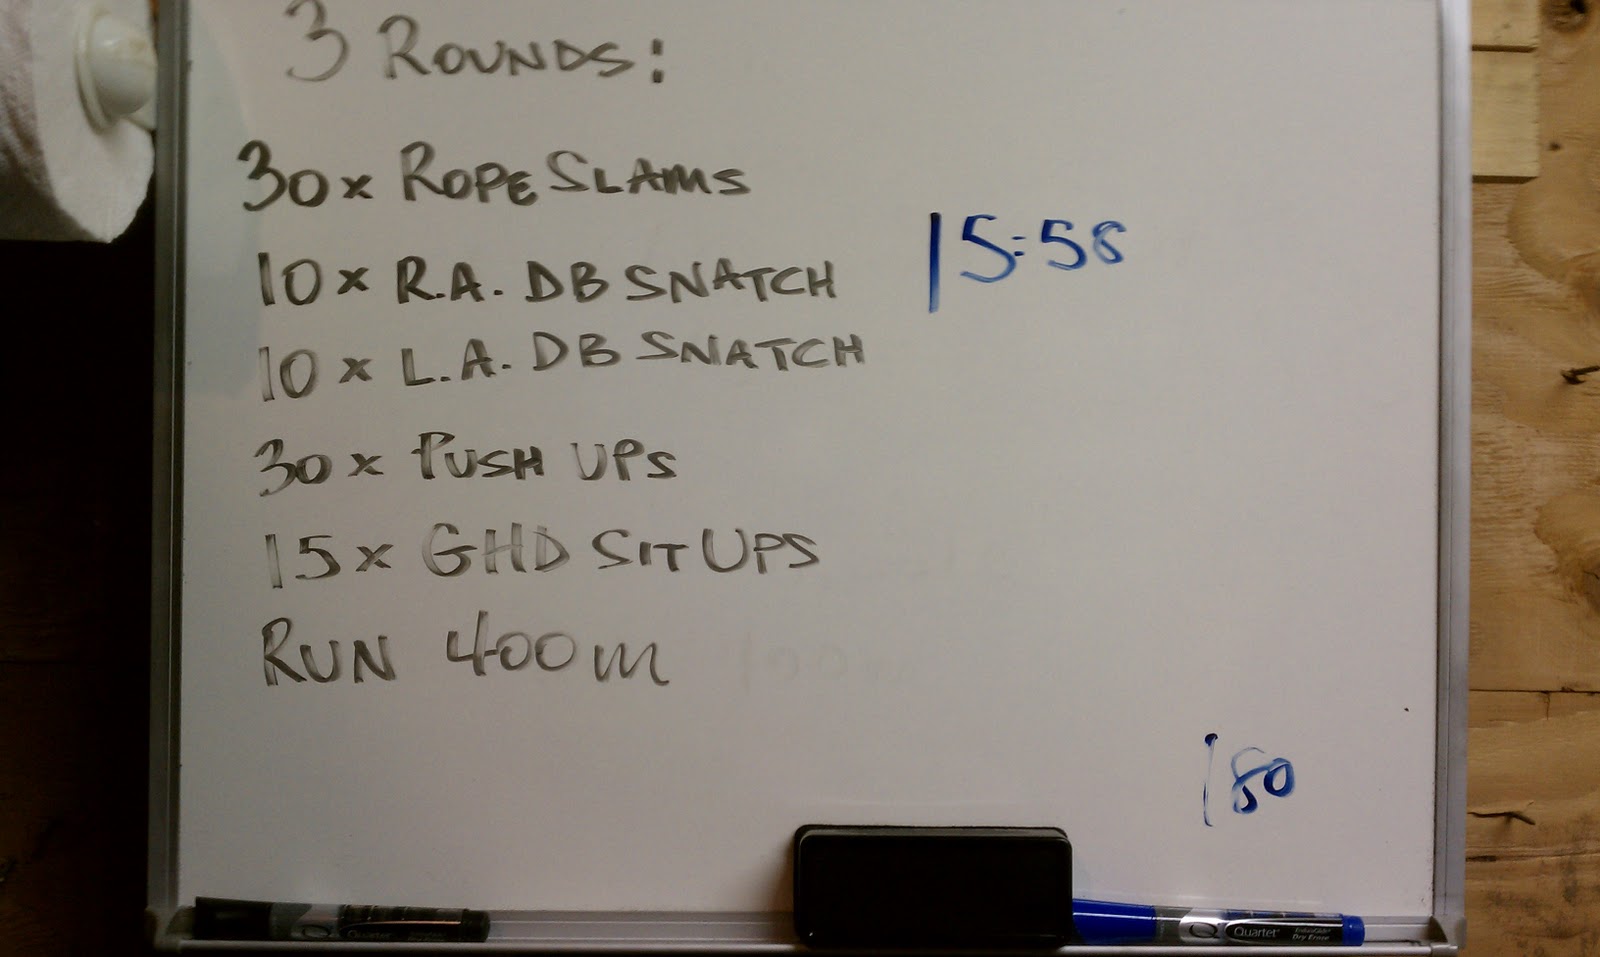 3 ROUNDS:
30x ROPE SLAMS
10x R.A. DB SNATCH
15:58
10x L.A. DB SNATCH
30x PUSH UPS
15x GHD SIT UPS
RUN 400m
180
Quartet
Q Quartet
Dry Erase